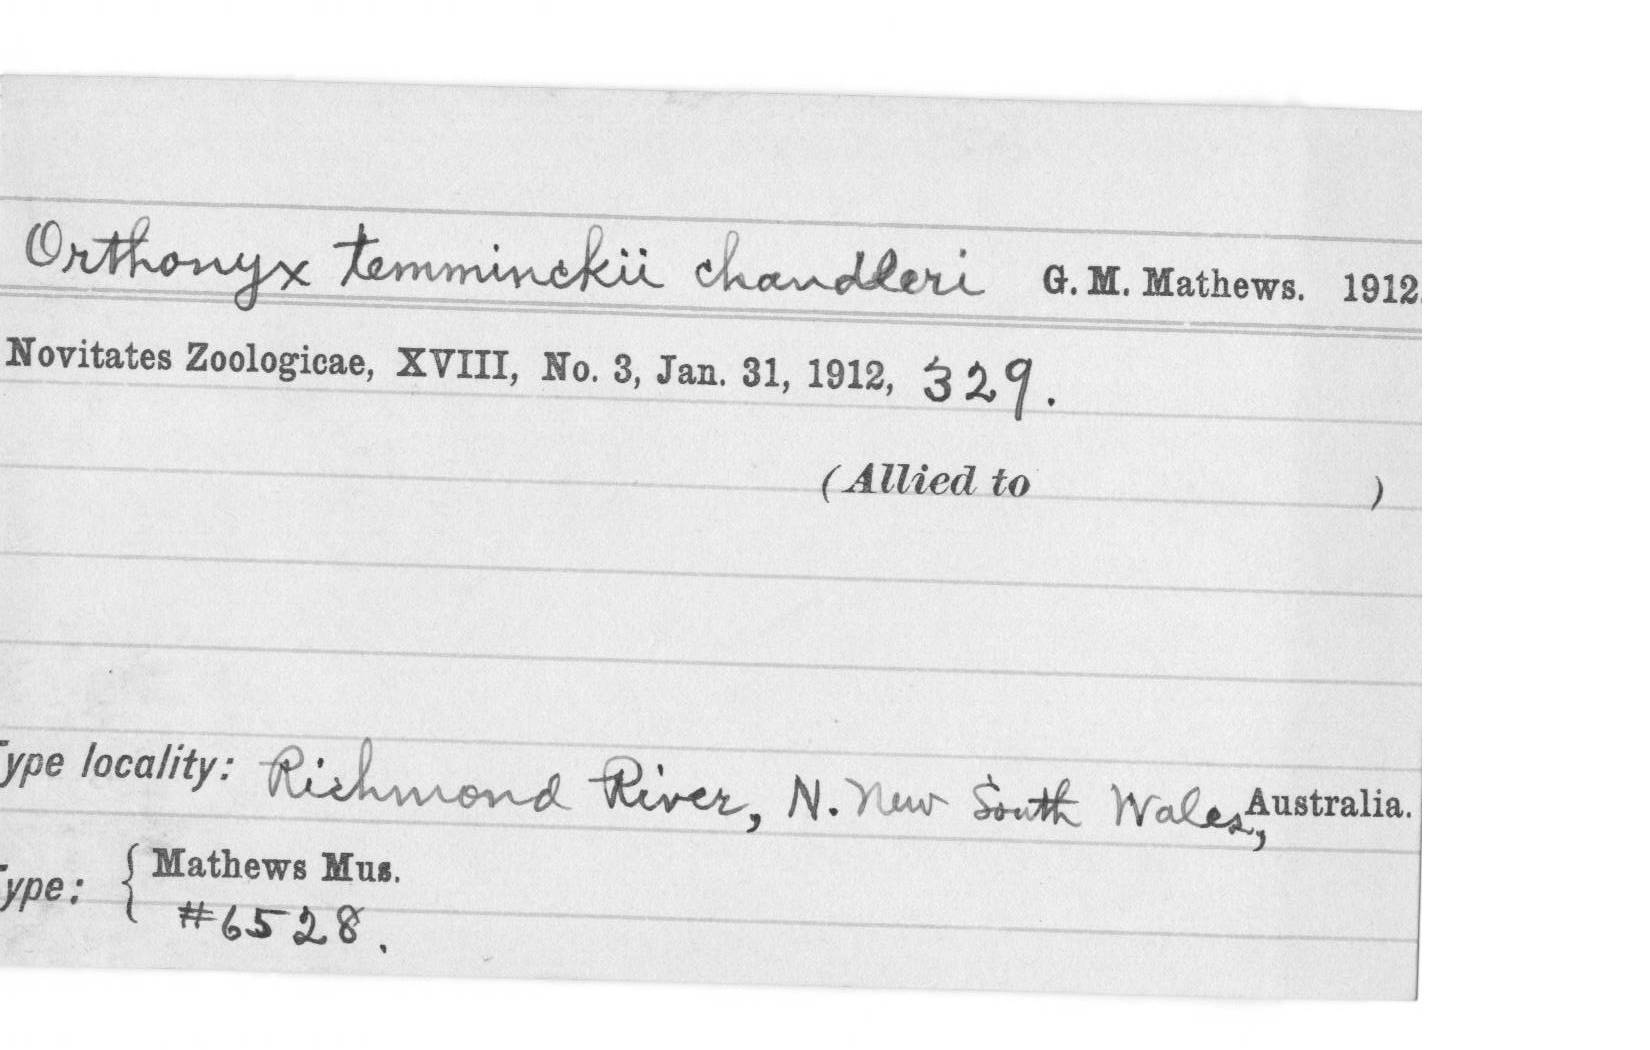 Orthonyx temminckii chandleri G. M. Mathews. 1912.
Novitates Zoologicae, XVIII, No. 3, Jan. 31, 1912, 329.
(Allied to )
Type locality: Richmond River, N. New South Wales, Australia.
Type: { Mathews Mus.
#6528.